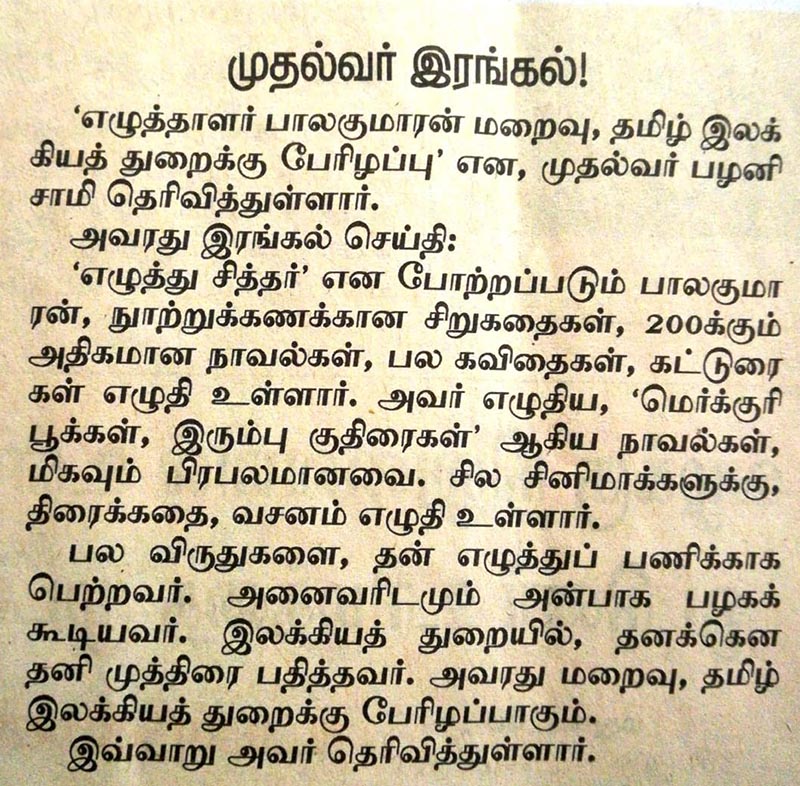 முதல்வர் இரங்கல்!
‘எழுத்தாளர் பாலகுமாரன் மறைவு, தமிழ் இலக்
கியத் துறைக்கு பேரிழப்பு’ என, முதல்வர் பழனி
சாமி தெரிவித்துள்ளார்.
அவரது இரங்கல் செய்தி:
‘எழுத்து சித்தர்’ என போற்றப்படும் பாலகுமா
ரன், நுாற்றுக்கணக்கான சிறுகதைகள், 200க்கும்
அதிகமான நாவல்கள், பல கவிதைகள், கட்டுரை
கள் எழுதி உள்ளார். அவர் எழுதிய, ‘மெர்க்குரி
பூக்கள், இரும்பு குதிரைகள்’ ஆகிய நாவல்கள்,
மிகவும் பிரபலமானவை. சில சினிமாக்களுக்கு,
திரைக்கதை, வசனம் எழுதி உள்ளார்.
பல விருதுகளை, தன் எழுத்துப் பணிக்காக
பெற்றவர். அனைவரிடமும் அன்பாக பழகக்
கூடியவர். இலக்கியத் துறையில், தனக்கென
தனி முத்திரை பதித்தவர். அவரது மறைவு, தமிழ்
இலக்கியத் துறைக்கு பேரிழப்பாகும்.
இவ்வாறு அவர் தெரிவித்துள்ளார்.